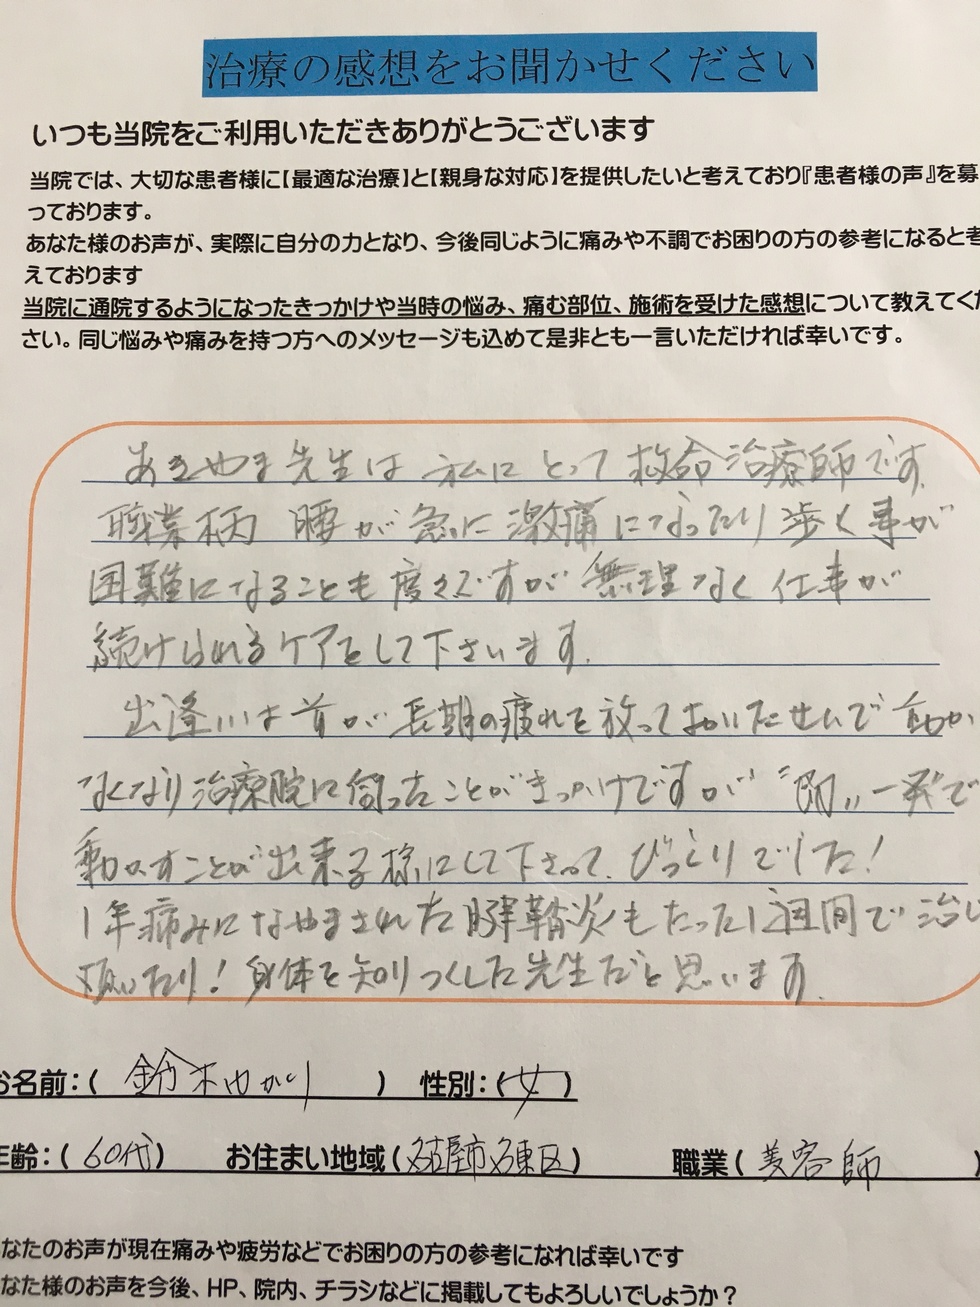 治療の感想をお聞かせください
いつも当院をご利用いただきありがとうございます
当院では、大切な患者様に【最適な治療】と【親身な対応】を提供したいと考えており『患者様の声』を募
っております。
あなた様のお声が、実際に自分の力となり、今後同じように痛みや不調でお困りの方の参考になると考
えております
当院に通院するようになったきっかけや当時の悩み、痛む部位、施術を受けた感想について教えてくだ
さい。同じ悩みや痛みを持つ方へのメッセージも込めて是非とも一言いただければ幸いです。
あきやま先生は私にとって救命治療師です。
職業柄 腰が急に激痛になったり歩く事が
困難になることも度々ですが無理なく仕事が
続けられるケアをして下さいます。
出逢いは首が長期の疲れを放っておいたせいで動か
なくなり治療院に伺ったことがきっかけですが 一発で
動かすことが出来る様にして下さって、びっくりでした!
1年痛みになやまされた腱鞘炎もたった1週間で治し
頂いたり!身体を知りつくした先生だと思います。
お名前:( 鈴木ゆかり ) 性別:(女)
年齢:(60代) お住まい地域(名古屋市名東区) 職業(美容師)
なたのお声が現在痛みや疲労などでお困りの方の参考になれば幸いです
なた様のお声を今後、HP、院内、チラシなどに掲載してもよろしいでしょうか?